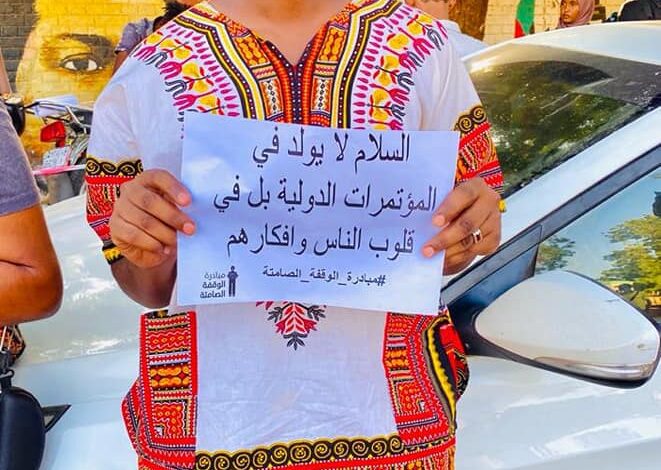 السلام لا يولد في
المؤتمرات الدولية بل في
قلوب الناس وافكارهم
#مبادرة_الوقفة_الصامتة
مبادرة
الوقفة
الصامتة